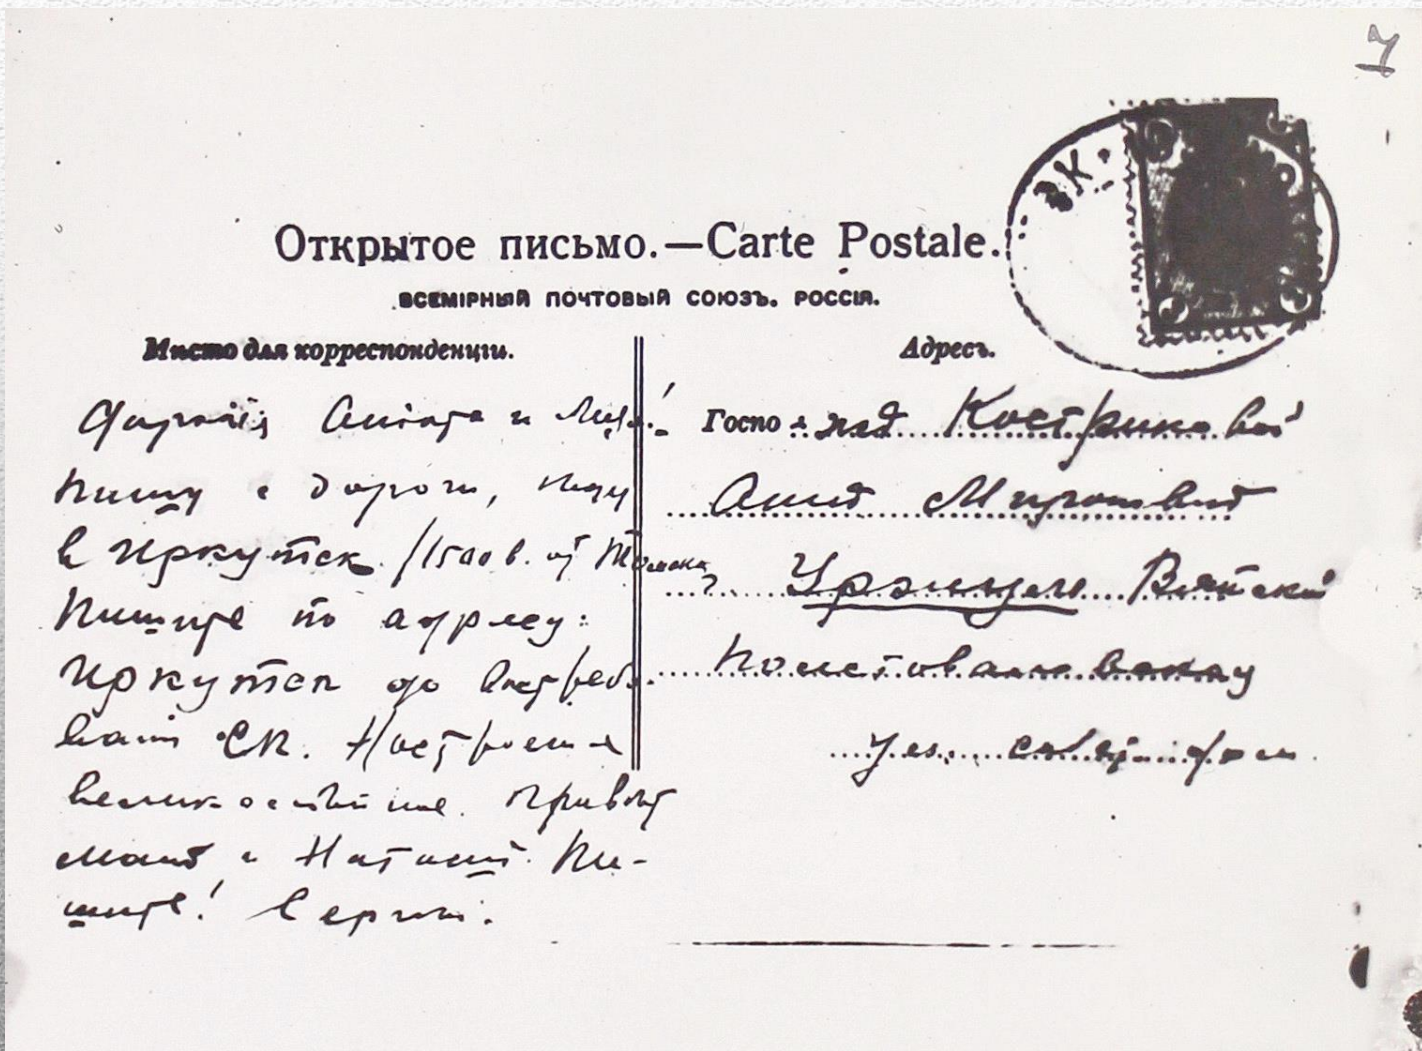 7
ЭК.
Открытое письмо.—Carte Postale.
ВСЕМІРНЫЙ ПОЧТОВЫЙ СОЮЗЪ. РОССІЯ.
Мѣсто для корреспонденціи.
Адресъ.
Дорогія Анюта и Лиза!
Пишу с дороги, еду
в Иркутск /1500 в. от Томска/
Пишите по адресу:
Иркутск до востребо-
вания СК. Настроение
великолепное. Привет
маме и Наташе. Пи-
шите! Сергей.
Госпо жѣ Костриковой
Аннѣ Мироновнѣ
Уржум Вятской